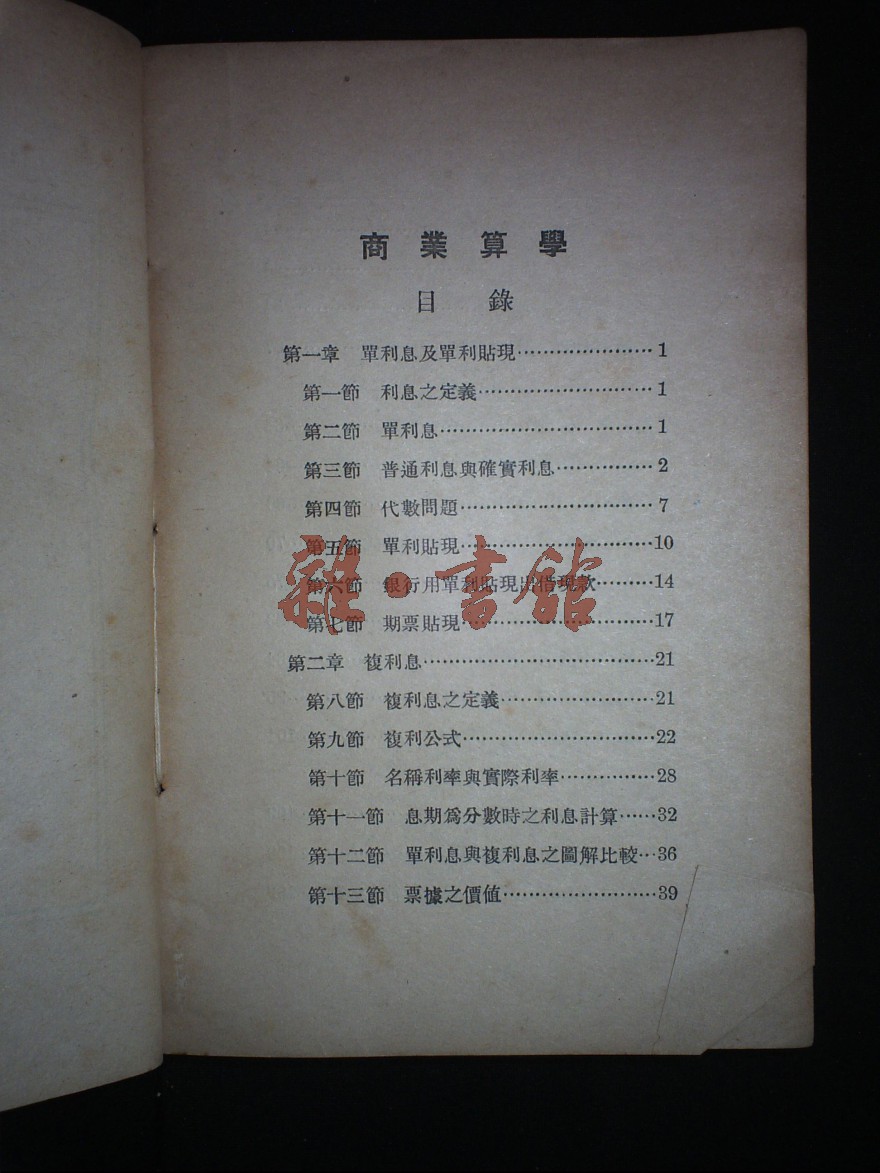 商業算學
目錄
第一章 單利息及單利貼現……………………1
第一節 利息之定義……………………1
第二節 單利息……………………1
第三節 普通利息與確實利息……………2
第四節 代數問題……………………7
第五節 單利貼現……………………10
第六節 銀行用單利貼現出借現款………14
第七節 期票貼現……………………17
雜·書館
第二章 複利息……………………21
第八節 複利息之定義………………21
第九節 複利公式……………………22
第十節 名稱利率與實際利率…………28
第十一節 息期爲分數時之利息計算……32
第十二節 單利息與複利息之圖解比較…36
第十三節 票據之價值…………………39